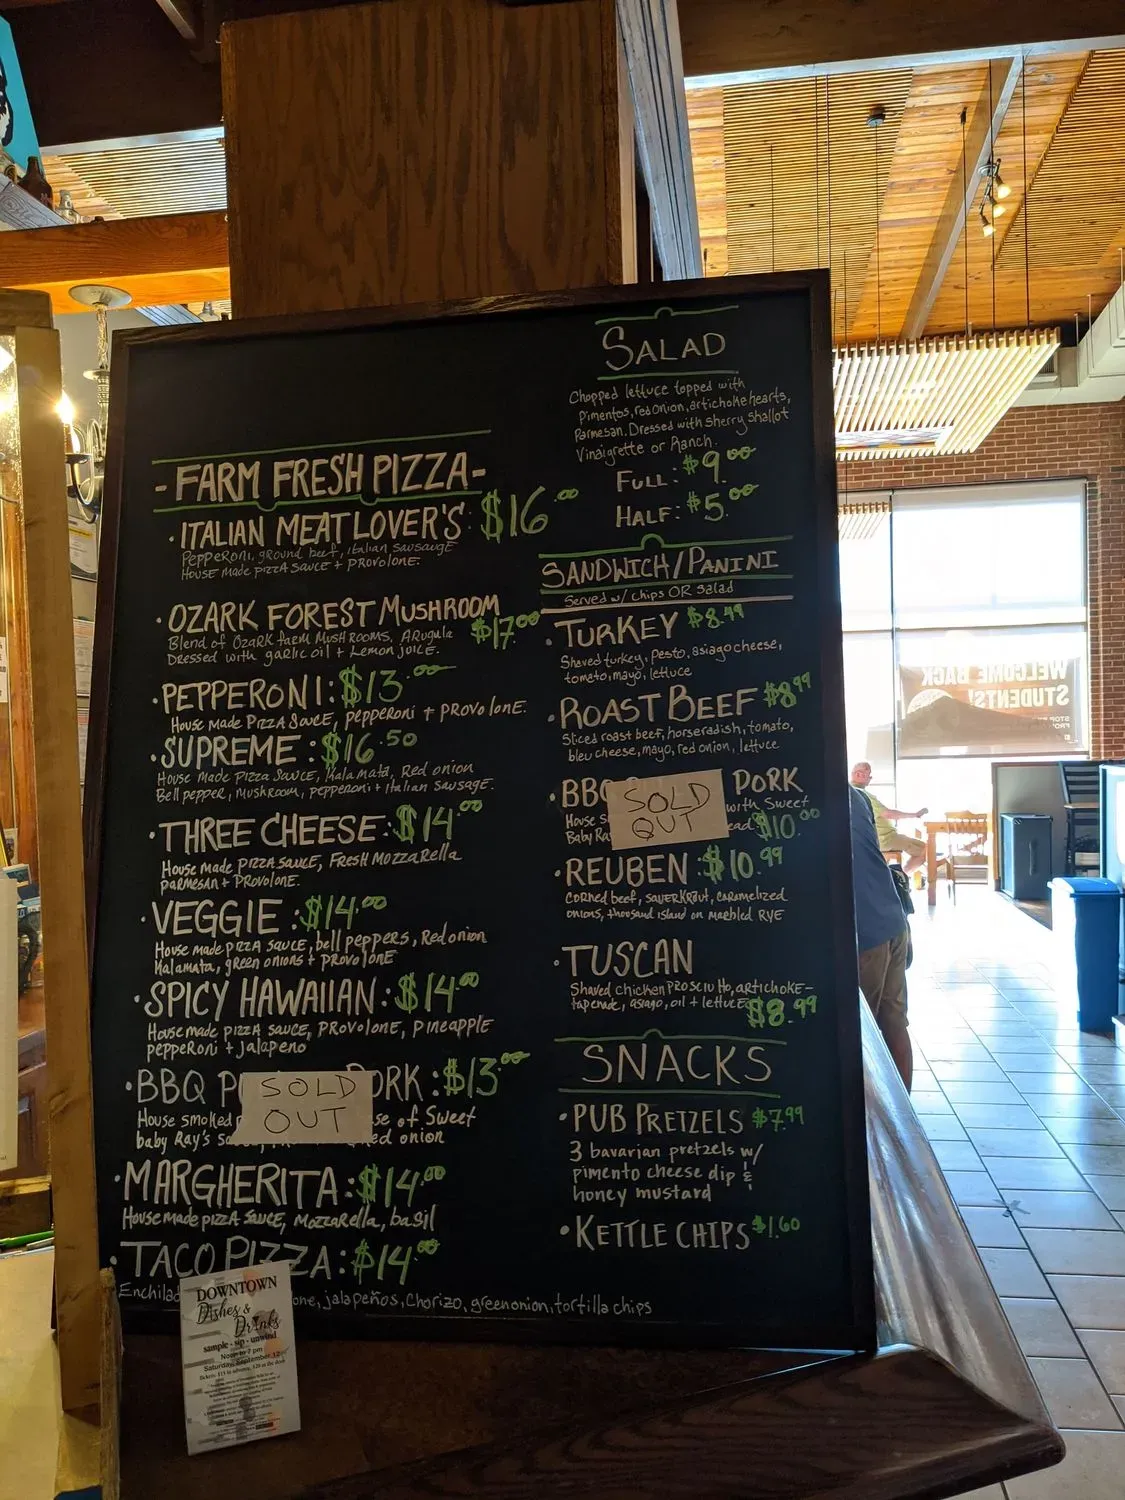 -FARM FRESH PIZZA-
· ITALIAN MEATLOVER'S: $16.00
Pepperoni, ground beef, italian sausauge
House made pizza sauce + provolone.
· OZARK FOREST MUSHROOM
$17.00
Blend of Ozark farm mushrooms, Arugula
Dressed with garlic oil + Lemon juice.
· PEPPERONI: $13.00
House made pizza sauce, pepperoni + provolone.
· SUPREME: $16.50
House made pizza sauce, Kalamata, Red onion
Bell pepper, mushroom, pepperoni + Italian sausage.
· THREE CHEESE: $14.00
House made pizza sauce, Fresh mozzarella
parmesan + provolone.
· VEGGIE: $14.00
House made pizza sauce, bell peppers, Red onion
Kalamata, green onions + provolone
· SPICY HAWAIIAN: $14.00
House made pizza sauce, provolone, pineapple
pepperoni + jalapeno
· BBQ P ORK: $13.00
SOLD
OUT
House smoked se of Sweet
baby Ray's onion
· MARGHERITA: $14.00
House made pizza sauce, mozzarella, basil
· TACO PIZZA: $14.00
Enchilad one, jalapeños, chorizo, green onion, tortilla chips
SALAD
Chopped lettuce topped with
pimentos, red onion, artichoke hearts,
Parmesan. Dressed with sherry shallot
Vinaigrette or Ranch.
FULL: $9.00
HALF: $5.00
SANDWICH/PANINI
Served w/ chips OR salad
· TURKEY $8.99
Shaved turkey, pesto, asiago cheese,
tomato, mayo, lettuce
· ROAST BEEF $8.99
Sliced roast beef, horseradish, tomato,
bleu cheese, mayo, red onion, lettuce
· BBQ PORK
SOLD
OUT
House s with Sweet
Baby Ra ead $10.00
· REUBEN: $10.99
corned beef, sauerkraut, caramelized
onions, thousand island on marbled RYE
· TUSCAN
Shaved chicken, prosciutto, artichoke-
tapenade, asiago, oil + lettuce $8.99
SNACKS
· PUB PRETZELS $7.99
3 bavarian pretzels w/
pimento cheese dip &
honey mustard
· KETTLE CHIPS $1.60
DOWNTOWN
Dishes &
Drinks
sample - sip - unwind
Noon to 7 pm
Saturday, September 12
WELCOME BACK
STUDENTS!